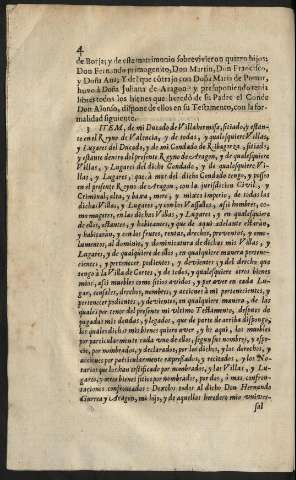 4
de Borja; y de este matrimonio sobrevivieron quatro hijos;
Don Fernando primogenito, Don Martin, Don Francisco,
y Doña Ana; Y de el que cõtrajo con Doña Maria de Pomar,
huvo à Doña Juliana de Aragon: y presuponiendo tenia
libres todos los bienes que heredó de su Padre el Conde
Don Alonso, dispone de ellos en su Testamento, con la formalidad siguiente.
3 ITEM, de mi Ducado de Villahermosa, sitiado, y estante
en el Reyno de Valencia, y de todas, y qualesquiere Villas,
y Lugares del Ducado, y de mi Condado de Ribagorza, sitiado,
y estante dentro del presente Reyno de Aragon, y de qualesquiere
Villas, y Lugares del dicho Condado, y de qualesquiere Villas,
y Lugares, que à mas del dicho Condado tengo, y posseo
en el presente Reyno de Aragon, con la jurisdicion Civil, y
Criminal, alta, y baxa, mero, y mixto Imperio, de todas las
dichas Villas, y Lugares, y con los Vassallos, assi hombres, como
mugeres, en las dichas Villas, y Lugares, y en qualesquiera
de ellos, estantes, y habitantes, y que de aqui adelante estaràn,
y habitaràn, y con los frutos, rentas, drechos, proventos, y emolumentos,
al dominio, y dominicatura de dichas mis Villas, y
Lugares, y de qualquiere de ellos, en qualquiere manera pertenecientes,
y pertenecer podientes, y devientes; y del drecho que
tengo à la Villa de Cortes, y de todos, y qualesquiere otros bienes
mios, assi muebles como sitios avidos, y por aver en cada Lugar,
censales, drechos, nombres, y acciones à mi pertenecientes, y
pertenecer podientes, y devientes, en qualquiere manera, de los
quales por tenor del presente mi ultimo Testamento, despues de
pagadas mis deudas, y legados, que de parte de arriba dispongo,
los quales dichos mis bienes quiero aver, y he aqui, los muebles
por particularmente cada uno de ellos, segun sus nombres, y especies,
por nombrados, y declarados, y los dichos, y los drechos, y
acciones por particularmente expressados, y recitados, y los Notarios
que los han testificado por nombrados, y las Villas, y Lugares,
y otros bienes sitios por nombrados, por dos, ò mas confrontaciones
confrontados: Dexolos todos al dicho Don Hernando
de Gurrea y Aragon, mi hijo, y de aquellos heredero mio univer-
sal